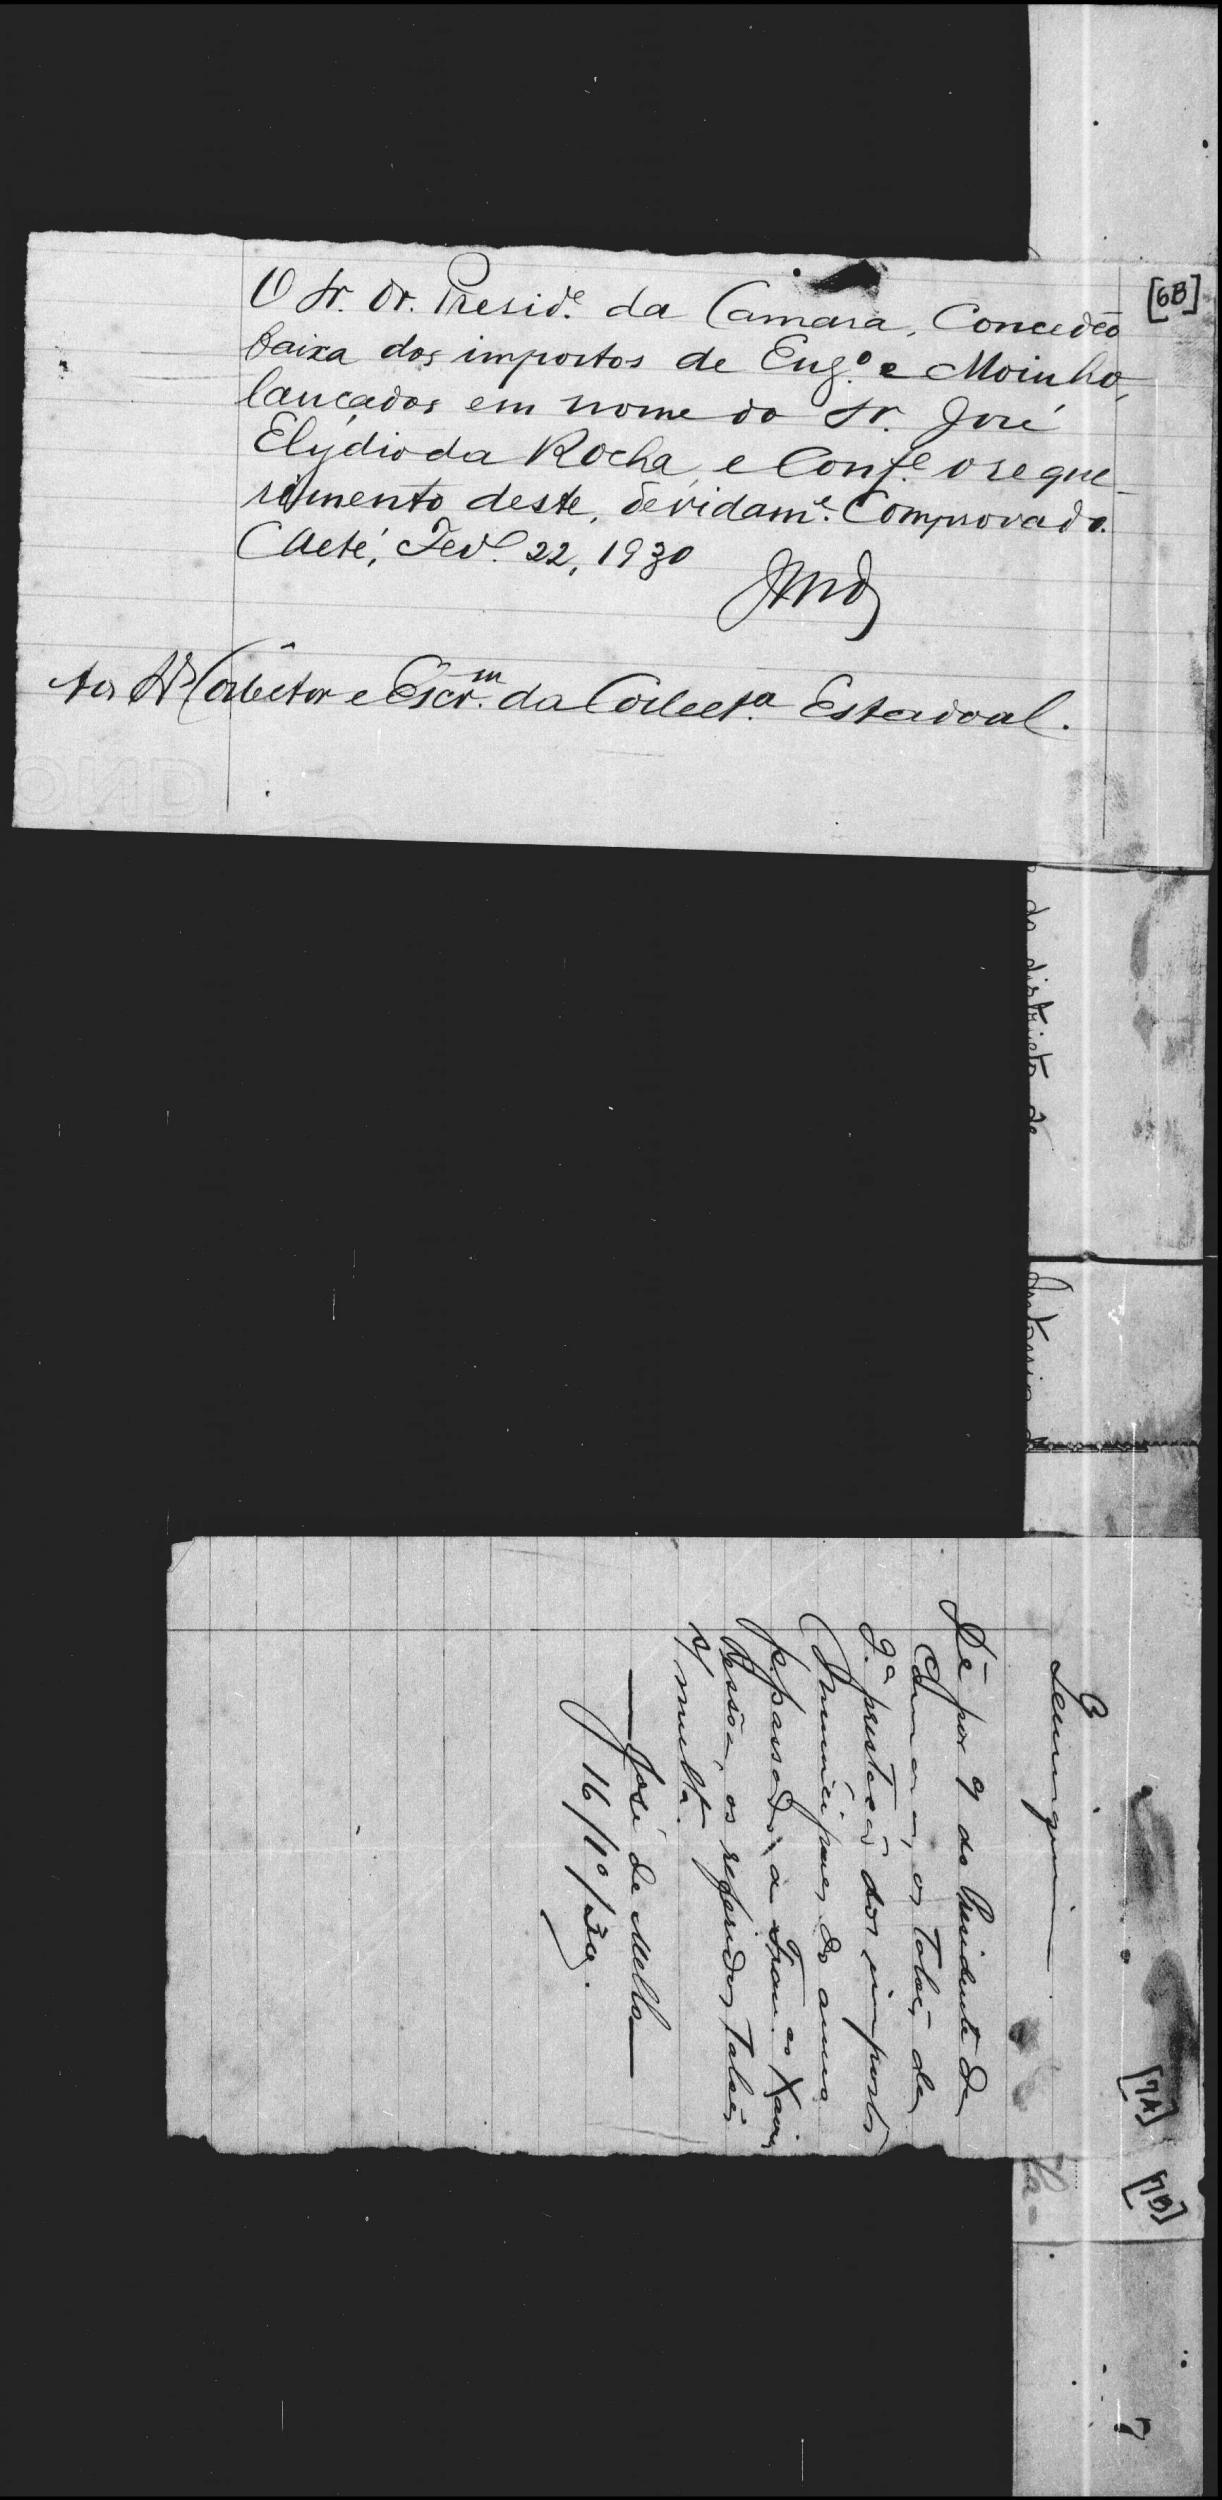 [6B]
O Sr. Dr. Presid.e da Camara, Concedeo
baixa dos impostos de Eng.o e Moinho,
lançados em nome do Sr. José
Elydio da Rocha, e Conf.e o reque-
rimento deste, devidam.e Comprovado.
Caeté, Fev.o 22, 1930
Aos Srs Collector e Escr.m da Collect.a Estadoal.
do districto de
Antonio
[7A]
[7B]
Dê por 9 do Presidente da
Camara, os talões da
2.a prestação dos impostos
Municipaes do anno
p. passado, a Fran.co Xavier
Pessôa, os referidos talões
s/ multa.
José de Mello
16/10/30.
7